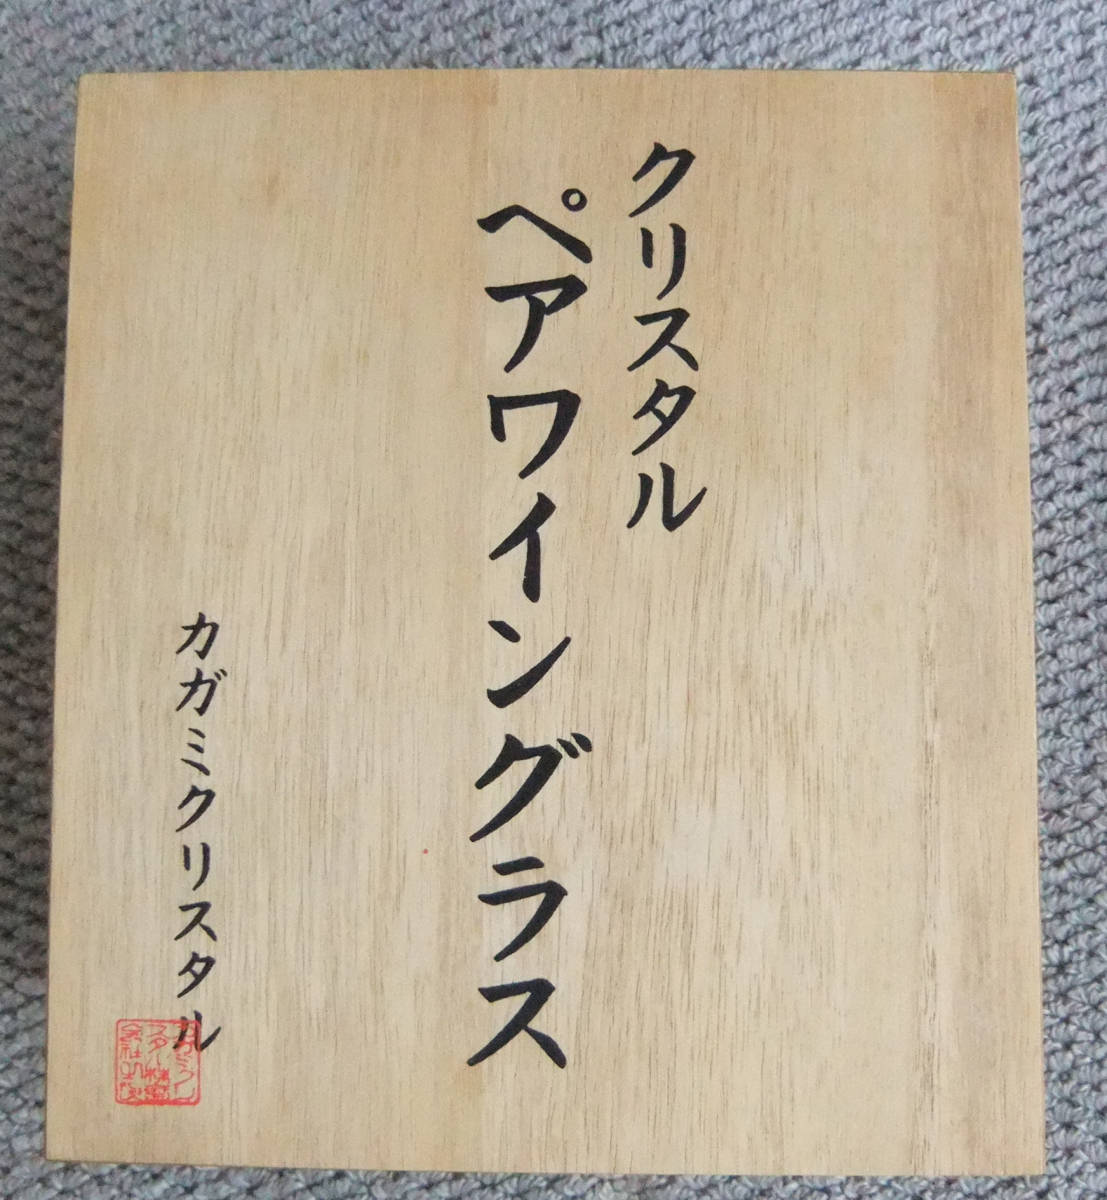 クリスタル
ペアワイングラス
カガミクリスタル